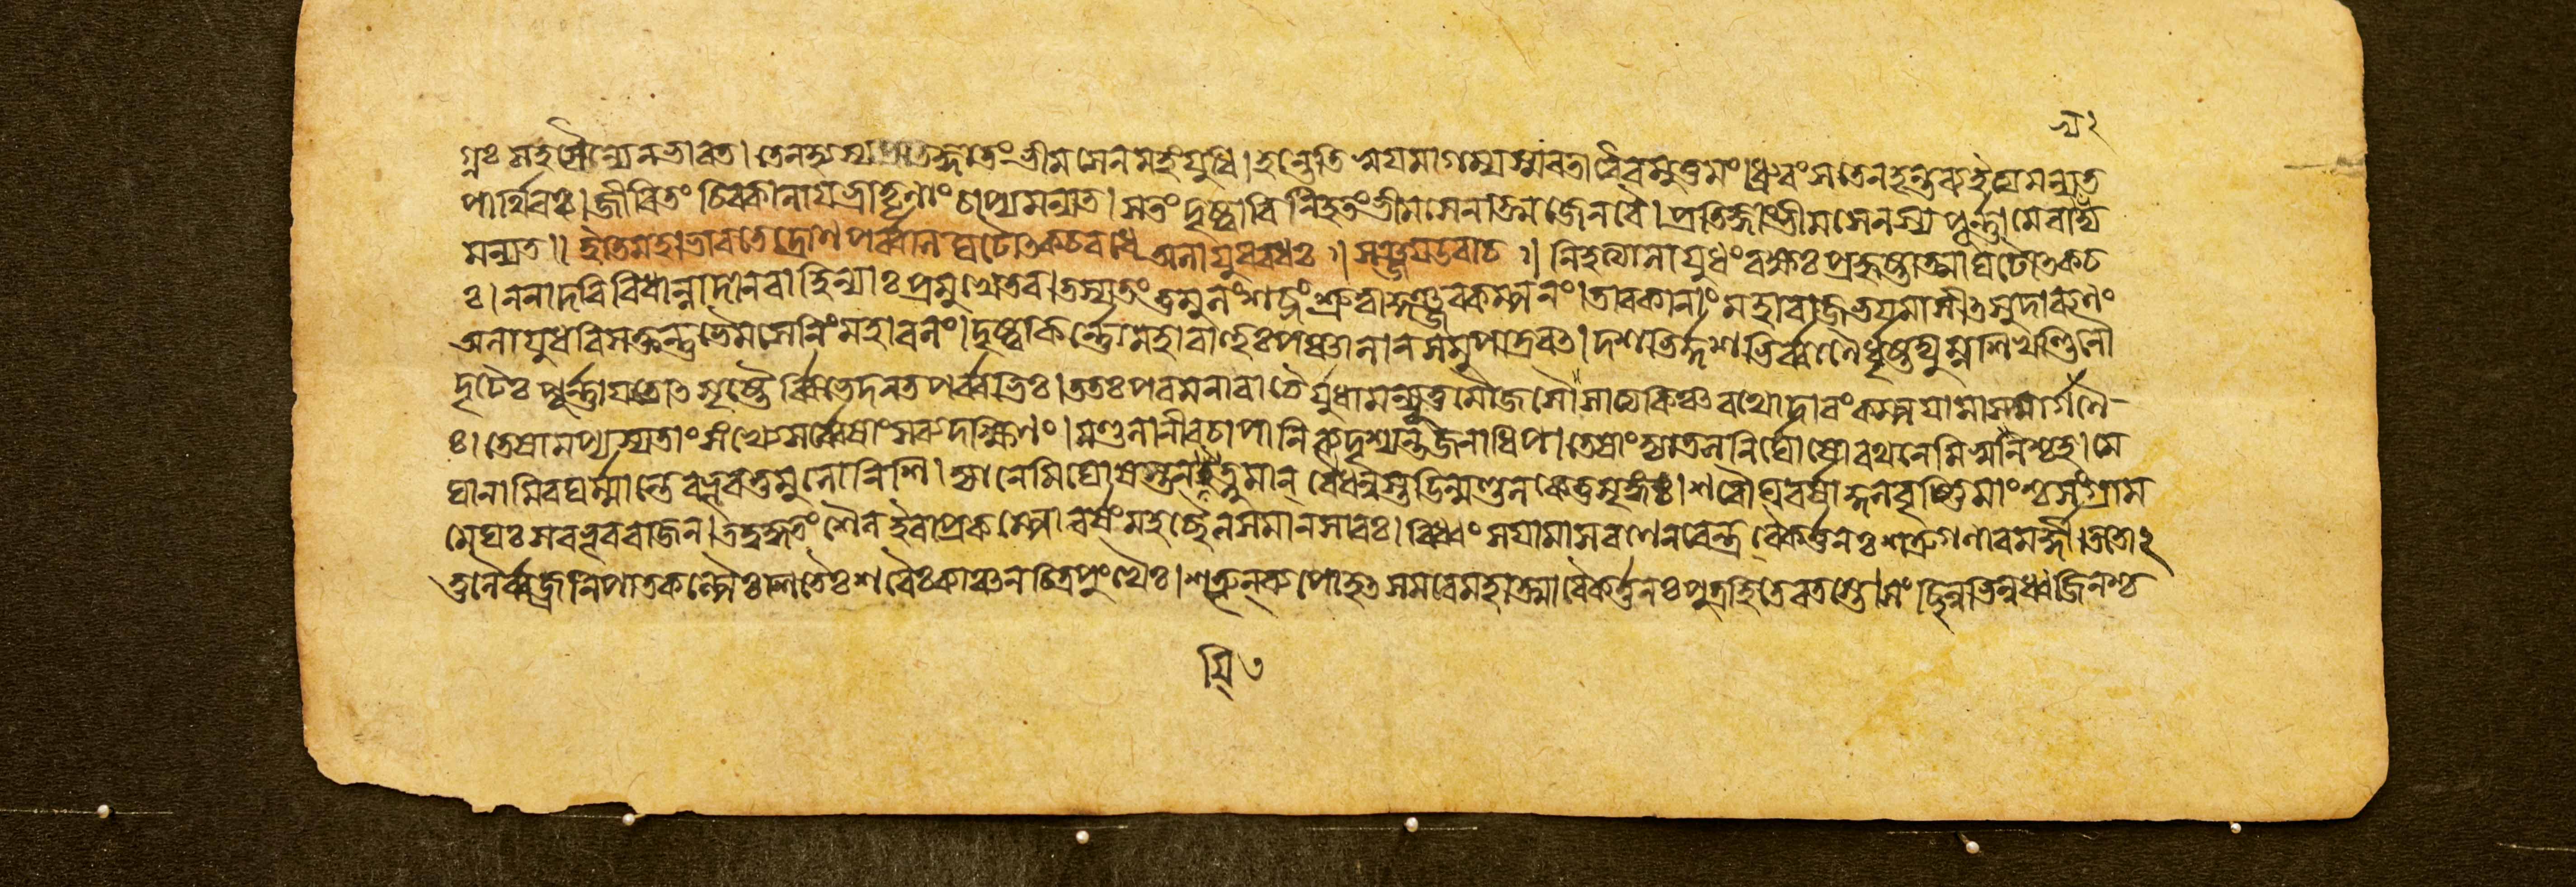 গ্নঃ সহ সৈন্যেন ভারত। তেনহ্যস্য প্রতিজ্ঞাতং ভীমসেনমহং যুধি। হন্তেতি স্বযমাগম্য স্মরতা বৈরমুত্তমং। ধ্রুবং স তেন হন্তব্য ইত্যমন্যত
পার্থিবঃ। জীবিতং চিরকালায ভ্রাতৄণাং চাপ্যমন্যত। স তং দৃষ্ট্বা বিনিহতং ভীমসেনাত্মজেন বৈ। প্রতিজ্ঞাং ভীমসেনস্য পূর্ণ্ণামেবাভ্য
মন্যত॥ ইতি মহাভারতে দ্রোণপর্ব্বণি ঘটোৎকচবধে অলাযুধবধঃ॥ সঞ্জয উবাচ॥ নিহত্যালাযুধং রক্ষঃ প্রহৃষ্টাত্মা ঘটোৎকচ
ঃ। ননাদ বিবিধান্নাদান্ বাহিন্যাঃ প্রমুখে তব। তস্য তং তুমুলং শব্দং শ্রুত্বা কুঞ্জরকম্পনং। তাবকানাং মহারাজ ভযমাসীৎ সুদারুণং
অলাযুধবিসক্তন্তু ভৈমসেনিং মহাবলং। দৃষ্ট্বা কর্ণ্ণো মহাবাহুঃ পঞ্চালান্ সমুপাদ্রবৎ। দশভির্দ্দশভির্ব্বাণৈর্ধৃষ্টদ্যুম্নশিখণ্ডিনৌ
দৃঢৈঃ পূর্ণ্ণাযতোৎসৃষ্টৈর্ব্বিভেদ নতপর্ব্বভিঃ। ততঃ পরমনারাচৈর্যুধামন্যূত্তমৌজসৌ। সাত্যকিঞ্চ রথোদারং কম্পযামাস মার্গণৈ
ঃ। তেষামপ্যস্যতাং সংখ্যে সর্ব্বেষাং সব্যদক্ষিণং। মণ্ডলানীব চাপানি ব্যদৃশ্যন্ত জনাধিপ। তেষাং জ্যাতলনির্ঘোষো রথনেমিস্বনশ্চ হ। মে
ঘানামিব ঘর্ম্মান্তে বভূব তুমুলো নিশি। জ্যানেমিঘোষস্তনযিত্নুমান্ বৈ ধনুস্তডিন্মণ্ডলকেতুশৃঙ্গঃ। শরৌঘবর্ষাকুলবৃষ্টিমাংশ্চ সংগ্রাম
মেঘঃ স বভূব রাজন্। তদুদ্ধতং শৈল ইবাপ্রকম্প্যো বর্ষং মহচ্ছৈলসমানসারঃ। বিধ্বংসযামাস রণে নরেন্দ্র বৈকর্ত্তনঃ শত্রুগণাবমর্দ্দী। ততো২
তুলৈর্ব্বজ্রনিপাতকল্পৈঃ শিতৈঃ শরৈঃ কাঞ্চনচিত্রপুংখৈঃ। শত্রূন্ ব্যপোহৎ সমরে মহাত্মা বৈকর্ত্তনঃ পুত্রহিতে রতস্তে। সংছিন্নভিন্নধ্বজিনশ্চ